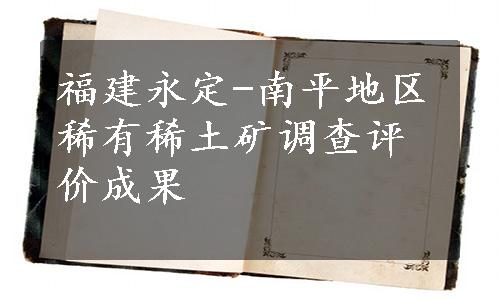 福建永定-南平地区
稀有稀土矿调查评
价成果